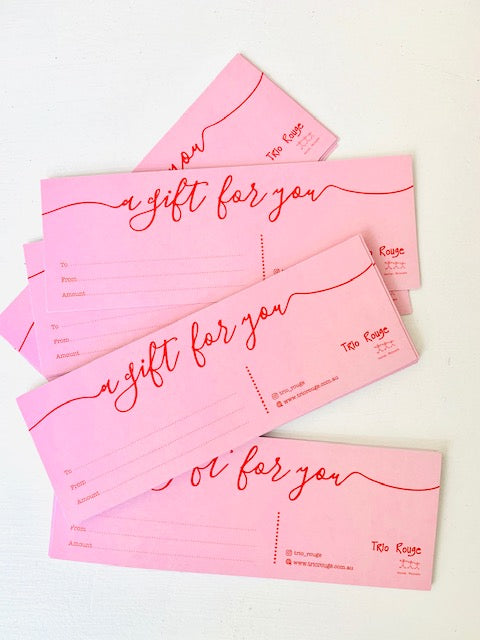 you
Trio Rouge
a gift for you
To
From
Amount
Rouge
To
From
Amount
a gift for you
To
From
Amount
trio_rouge
www.triorouge.com.au
Trio Rouge
for you
From
Amount
trio_rouge
www.triorouge.com.au
Trio Rouge